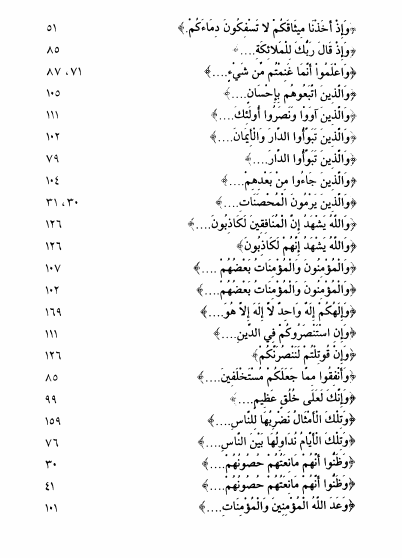 ﴿وَإِذْ أَخَذْنَا مِيثَاقَكُمْ لا تَسْفِكُونَ دِمَاءَكُمْ.﴾ ٥١
﴿وَإِذْ قَالَ رَبُّكَ لِلْمَلائكَةِ....﴾ ٨٥
﴿وَاعْلَمُوا أَنَّمَا غَنِمْتُم مِّن شَيْءٍ....﴾ ٧١، ٨٧
﴿وَالَّذِينَ اتَّبَعُوهُم بِإِحْسَانٍ....﴾ ١٠٥
﴿وَالَّذِينَ آوَوْا وَنَصَرُوا أُولَئِكَ....﴾ ١١١
﴿وَالَّذِينَ تَبَوَّأُوا الدَّارَ وَالْأِيمَانَ....﴾ ١٠٢
﴿وَالَّذِينَ تَبَوَّأُوا الدَّارَ....﴾ ٧٩
﴿وَالَّذِينَ جَاءُوا مِنْ بَعْدِهِمْ....﴾ ١٠٤
﴿وَالَّذِينَ يَرْمُونَ الْمُحْصَنَاتِ....﴾ ٣٠، ٣١
﴿وَاللَّهُ يَشْهَدُ إِنَّ الْمُنَافِقِينَ لَكَاذِبُونَ....﴾ ١٢٦
﴿وَاللَّهُ يَشْهَدُ إِنَّهُمْ لَكَاذِبُونَ﴾ ١٢٦
﴿وَالْمُؤْمِنُونَ وَالْمُؤْمِنَاتُ بَعْضُهُمْ ....﴾ ١٠٧
﴿وَالْمُؤْمِنُونَ وَالْمُؤْمِنَاتُ بَعْضُهُمْ....﴾ ١٠٢
﴿وَإِلَهُكُمْ إِلَهٌ وَاحِدٌ لاَّ إِلَهَ إِلاَّ هُوَ....﴾ ١٦٩
﴿وَإِنِ اسْتَنْصَرُوكُمْ فِي الدِّينِ....﴾ ١١١
﴿وَإِن قُوتِلْتُمْ لَنَنْصُرَنَّكُمْ﴾ ١٢٦
﴿وَأَنْفِقُوا مِمَّا جَعَلَكُمْ مُسْتَخْلَفِينَ....﴾ ٨٥
﴿وَإِنَّكَ لَعَلَى خُلُقٍ عَظِيمٍ....﴾ ٩٩
﴿وَتِلْكَ الْأَمْثَالُ نَضْرِبُهَا لِلنَّاسِ....﴾ ١٥٩
﴿وَتِلْكَ الْأَيَّامُ نُدَاوِلُهَا بَيْنَ النَّاسِ....﴾ ٧٦
﴿وَظَنُّوا أَنَّهُمْ مَانِعَتُهُمْ حُصُونُهُمْ....﴾ ٣٠
﴿وَظَنُّوا أَنَّهُمْ مَانِعَتُهُمْ حُصُونُهُمْ....﴾ ٤١
﴿وَعَدَ اللَّهُ الْمُؤْمِنِينَ وَالْمُؤْمِنَاتِ....﴾ ١٠١